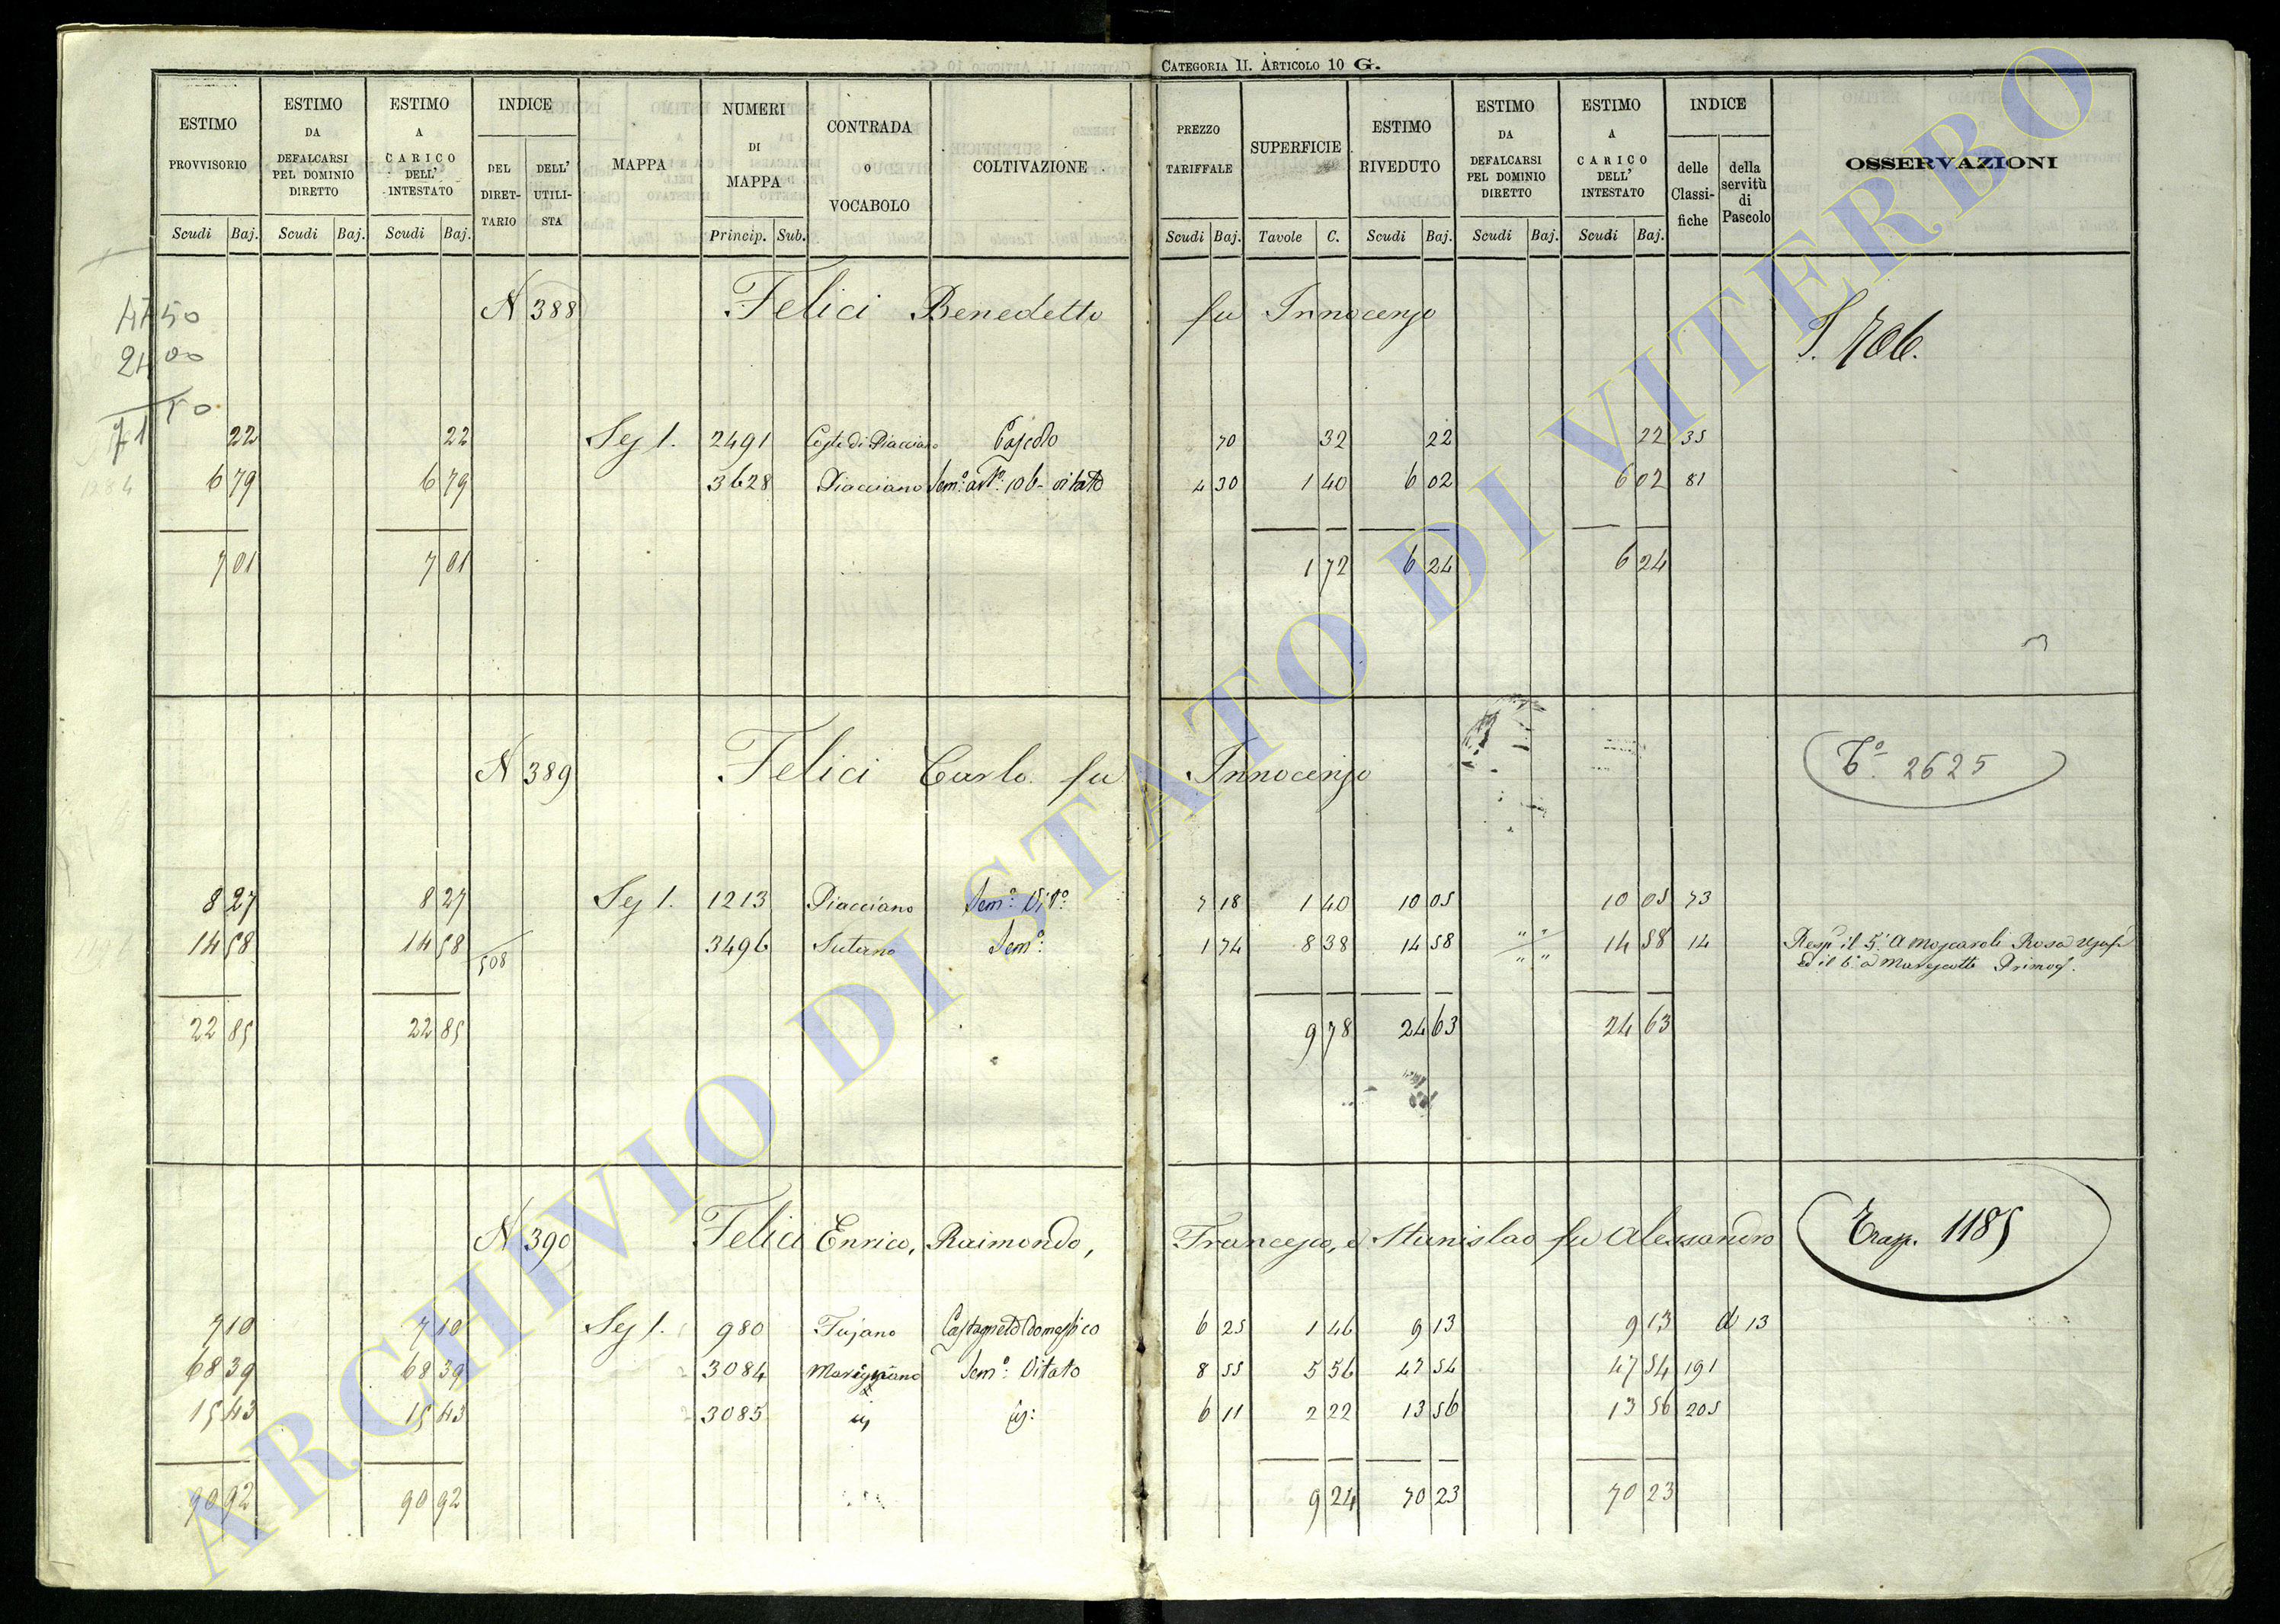 CATEGORIA II. ARTICOLO 10 G.
ESTIMO PROVVISORIO
ESTIMO DA DEFALCARSI PEL DOMINIO DIRETTO
ESTIMO A CARICO DELL' INTESTATO
INDICE
DEL DIRETTARIO
DELL' UTILISTA
MAPPA
NUMERI DI MAPPA
CONTRADA o VOCABOLO
COLTIVAZIONE
PREZZO TARIFFALE
SUPERFICIE
ESTIMO RIVEDUTO
ESTIMO DA DEFALCARSI PEL DOMINIO DIRETTO
ESTIMO A CARICO DELL' INTESTATO
INDICE
delle Classifiche
della servitù di Pascolo
OSSERVAZIONI
Scudi Baj. Scudi Baj. Scudi Baj. Princip. Sub. Scudi Baj. Tavole C. Scudi Baj. Scudi Baj. Scudi Baj.
47 50
24 00
71 50
1284
N 388 Felici Benedetto fu Innocenzo
22 22 Sez 1. 2491 Coste di Piacciano Pascolo 70 32 22 22 35
6 79 6 79 3628 Piacciano Sem.º vitato 4 30 1 40 6 02 6 02 81
7 01 7 01 1 72 6 24 6 24
N 389 Felici Carlo fu Innocenzo
Tº 2625
8 27 8 27 Sez 1. 1213 Piacciano Sem.º Vit.º 7 18 1 40 10 05 10 05 73
14 58 14 58 508 3496 Sutarno Sem.º 1 74 8 38 14 58 14 58 14 Resp. il 5.º a Moscaroli Rosa
ed il 6.º a Marescotti Primog.
22 85 22 85 9 78 24 63 24 63
N 390 Felici Enrico, Raimondo, Francesco, e Stanislao fu Alessandro
Trasp. 1185
7 10 7 10 Sez 1. 980 Fujano Castagneto Domestico 6 25 1 46 9 13 9 13 d 13
68 39 68 39 3084 Marignano Sem.º Vitato 8 55 5 56 47 54 47 54 191
15 43 15 43 3085 6 11 2 22 13 56 13 56 205
90 92 90 92 9 24 70 23 70 23
ARCHIVIO DI STATO DI VITERBO